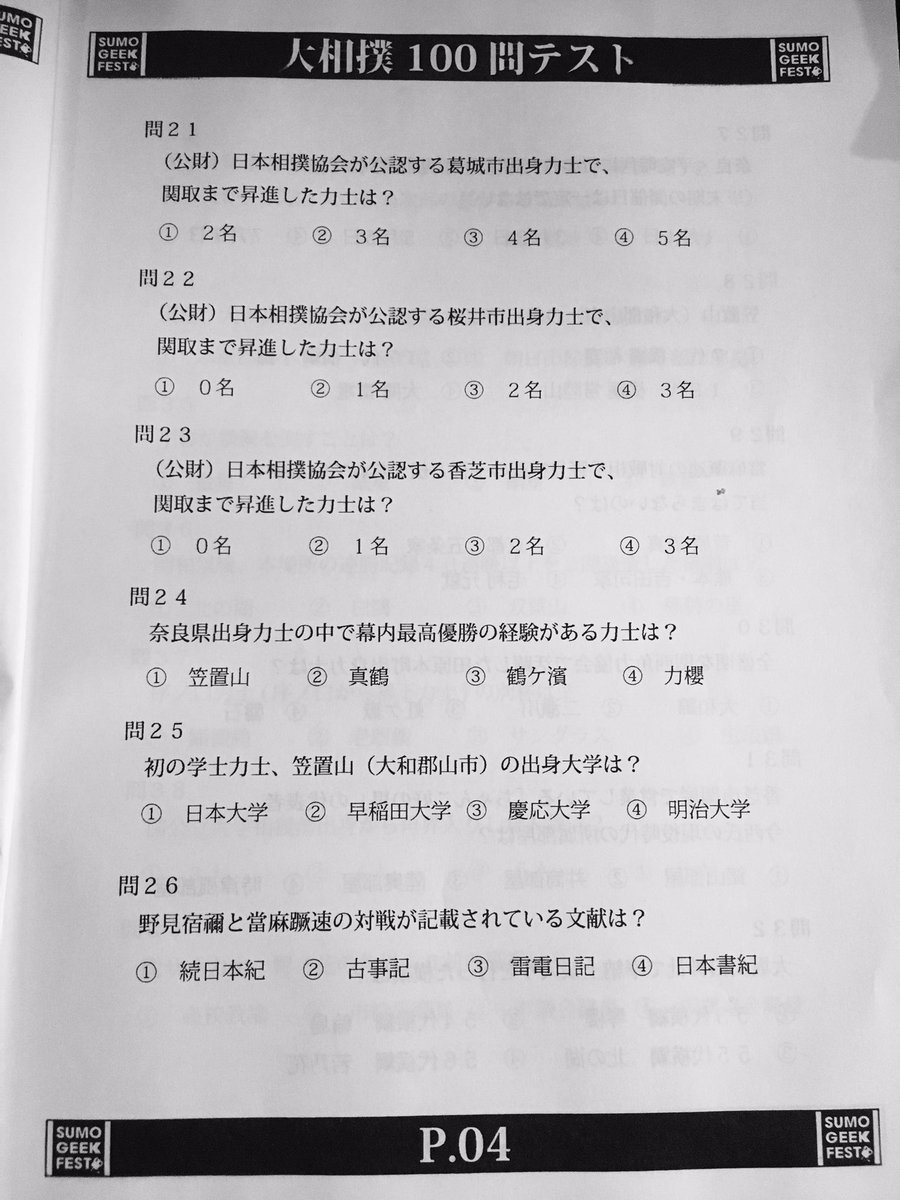 SUMO
GEEK
FEST
大相撲100問テスト
SUMO
GEEK
FEST
問21
（公財）日本相撲協会が公認する葛城市出身力士で、
関取まで昇進した力士は？
① 2名 ② 3名 ③ 4名 ④ 5名
問22
（公財）日本相撲協会が公認する桜井市出身力士で、
関取まで昇進した力士は？
① 0名 ② 1名 ③ 2名 ④ 3名
問23
（公財）日本相撲協会が公認する香芝市出身力士で、
関取まで昇進した力士は？
① 0名 ② 1名 ③ 2名 ④ 3名
問24
奈良県出身力士の中で幕内最高優勝の経験がある力士は？
① 笠置山 ② 真鶴 ③ 鶴ケ濱 ④ 力櫻
問25
初の学士力士、笠置山（大和郡山市）の出身大学は？
① 日本大学 ② 早稲田大学 ③ 慶応大学 ④ 明治大学
問26
野見宿禰と當麻蹶速の対戦が記載されている文献は？
① 続日本紀 ② 古事記 ③ 雷電日記 ④ 日本書紀
SUMO
GEEK
FEST
P.04
SUMO
GEEK
FEST